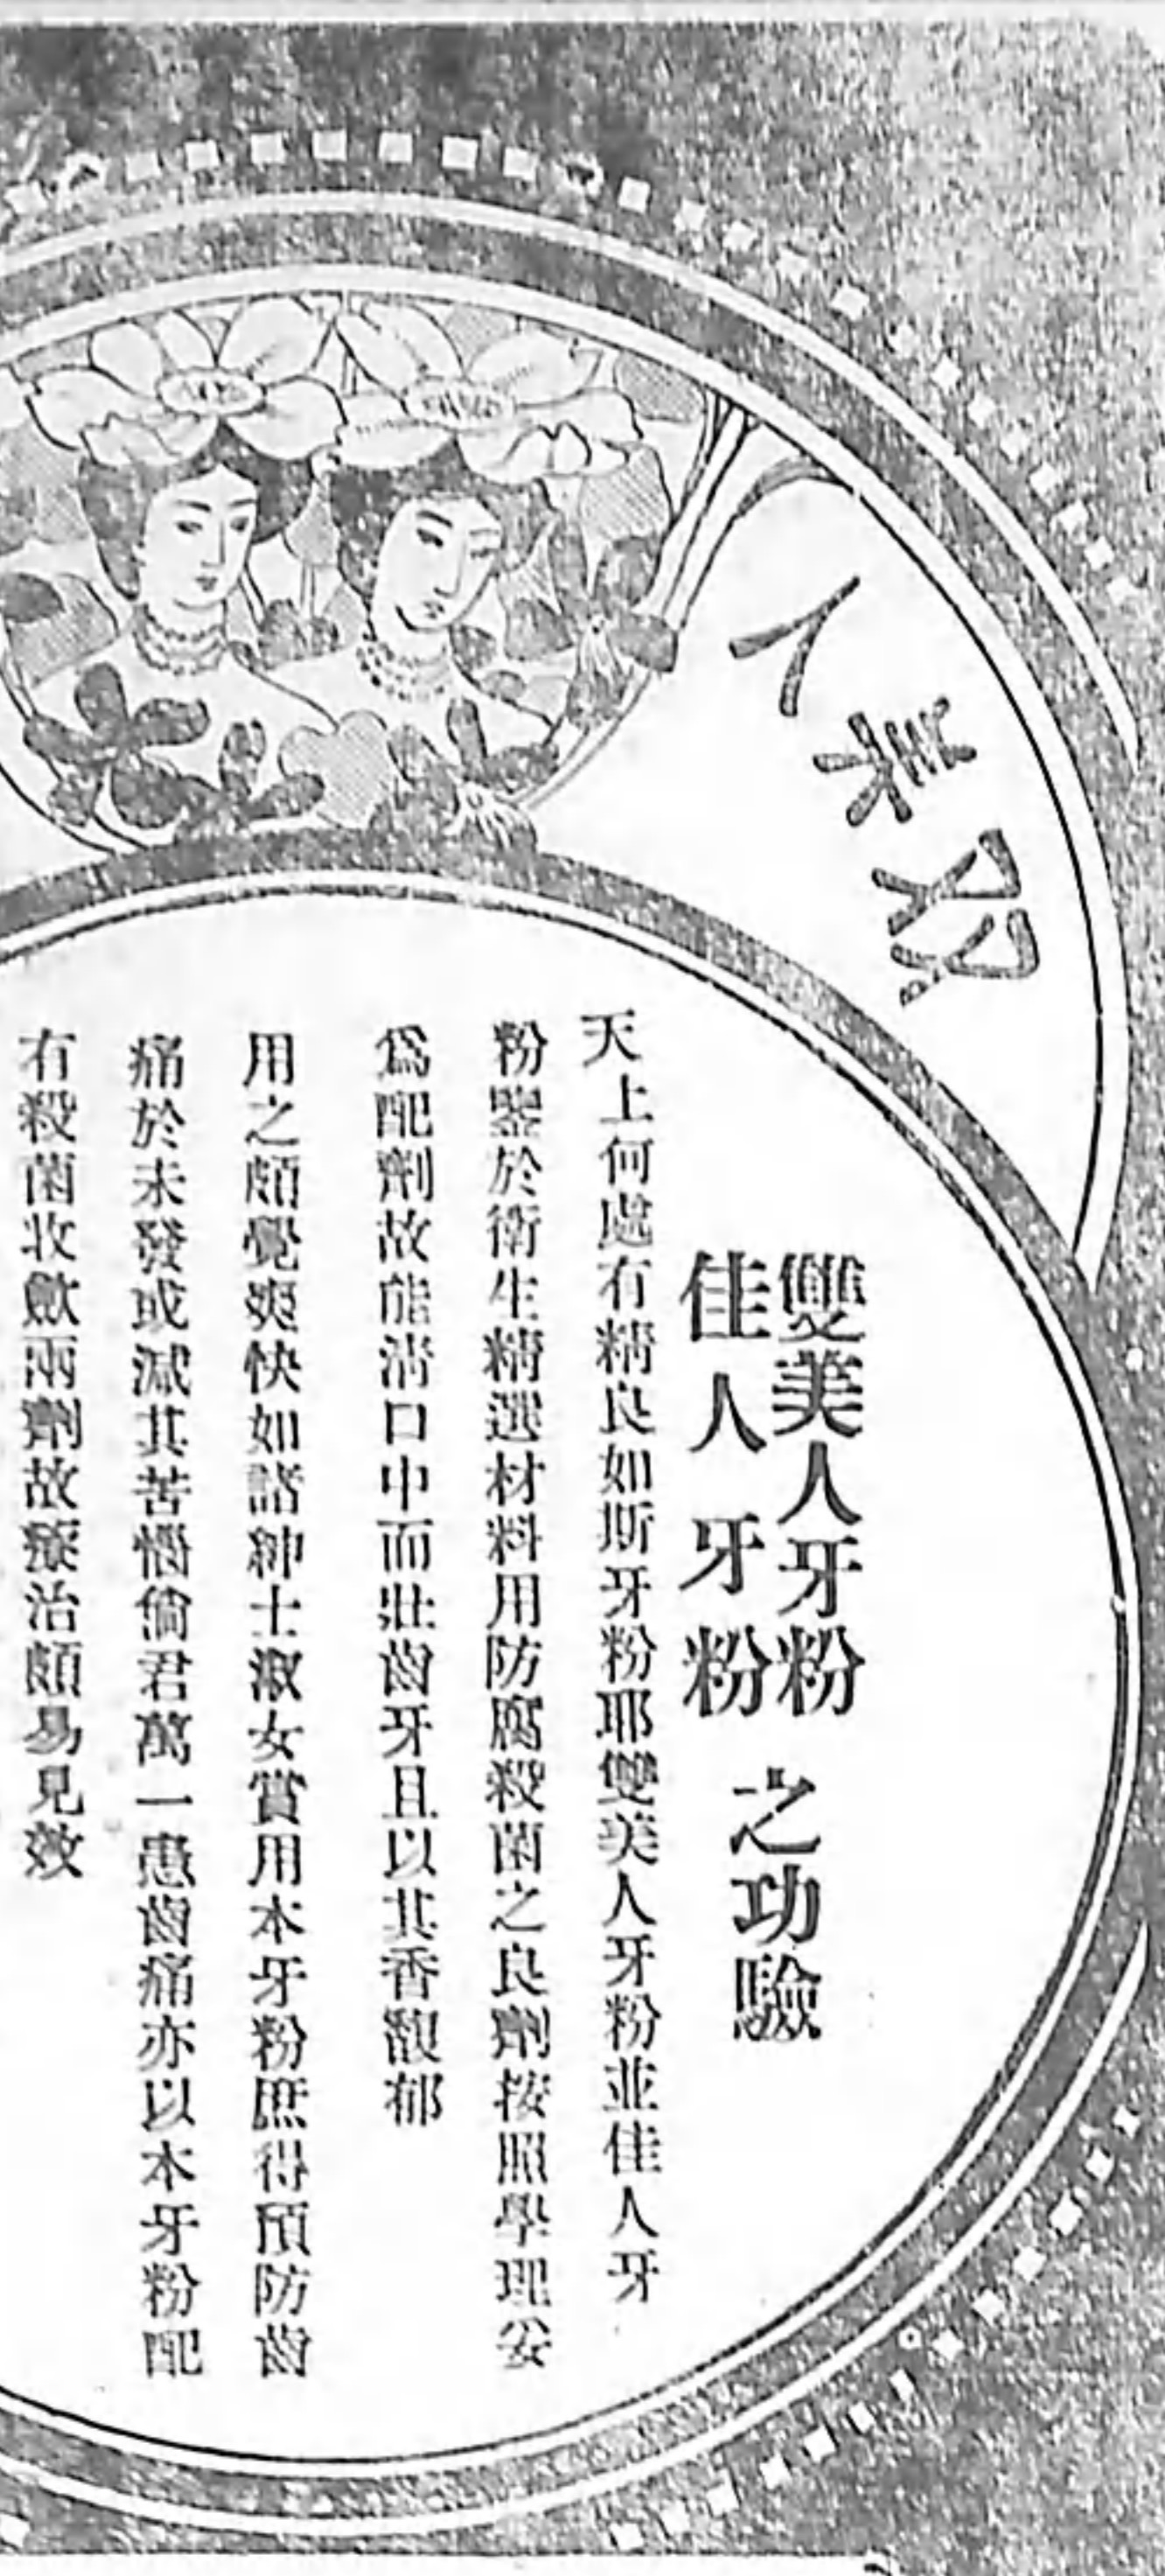 双美人
雙美人牙粉
佳人牙粉
之功驗
天上何處有精良如斯牙粉耶雙美人牙粉並佳人牙
粉鑒於衛生精選材料用防腐殺菌之良劑按照學理妥
爲配劑故能淸口中而壯齒牙且以其香馥郁
用之頗覺爽快如諸紳士淑女賞用本牙粉庶得預防齒
痛於未發或減其苦惱倘君萬一患齒痛亦以本牙粉配
有殺菌收歛兩劑故療治頗易見效